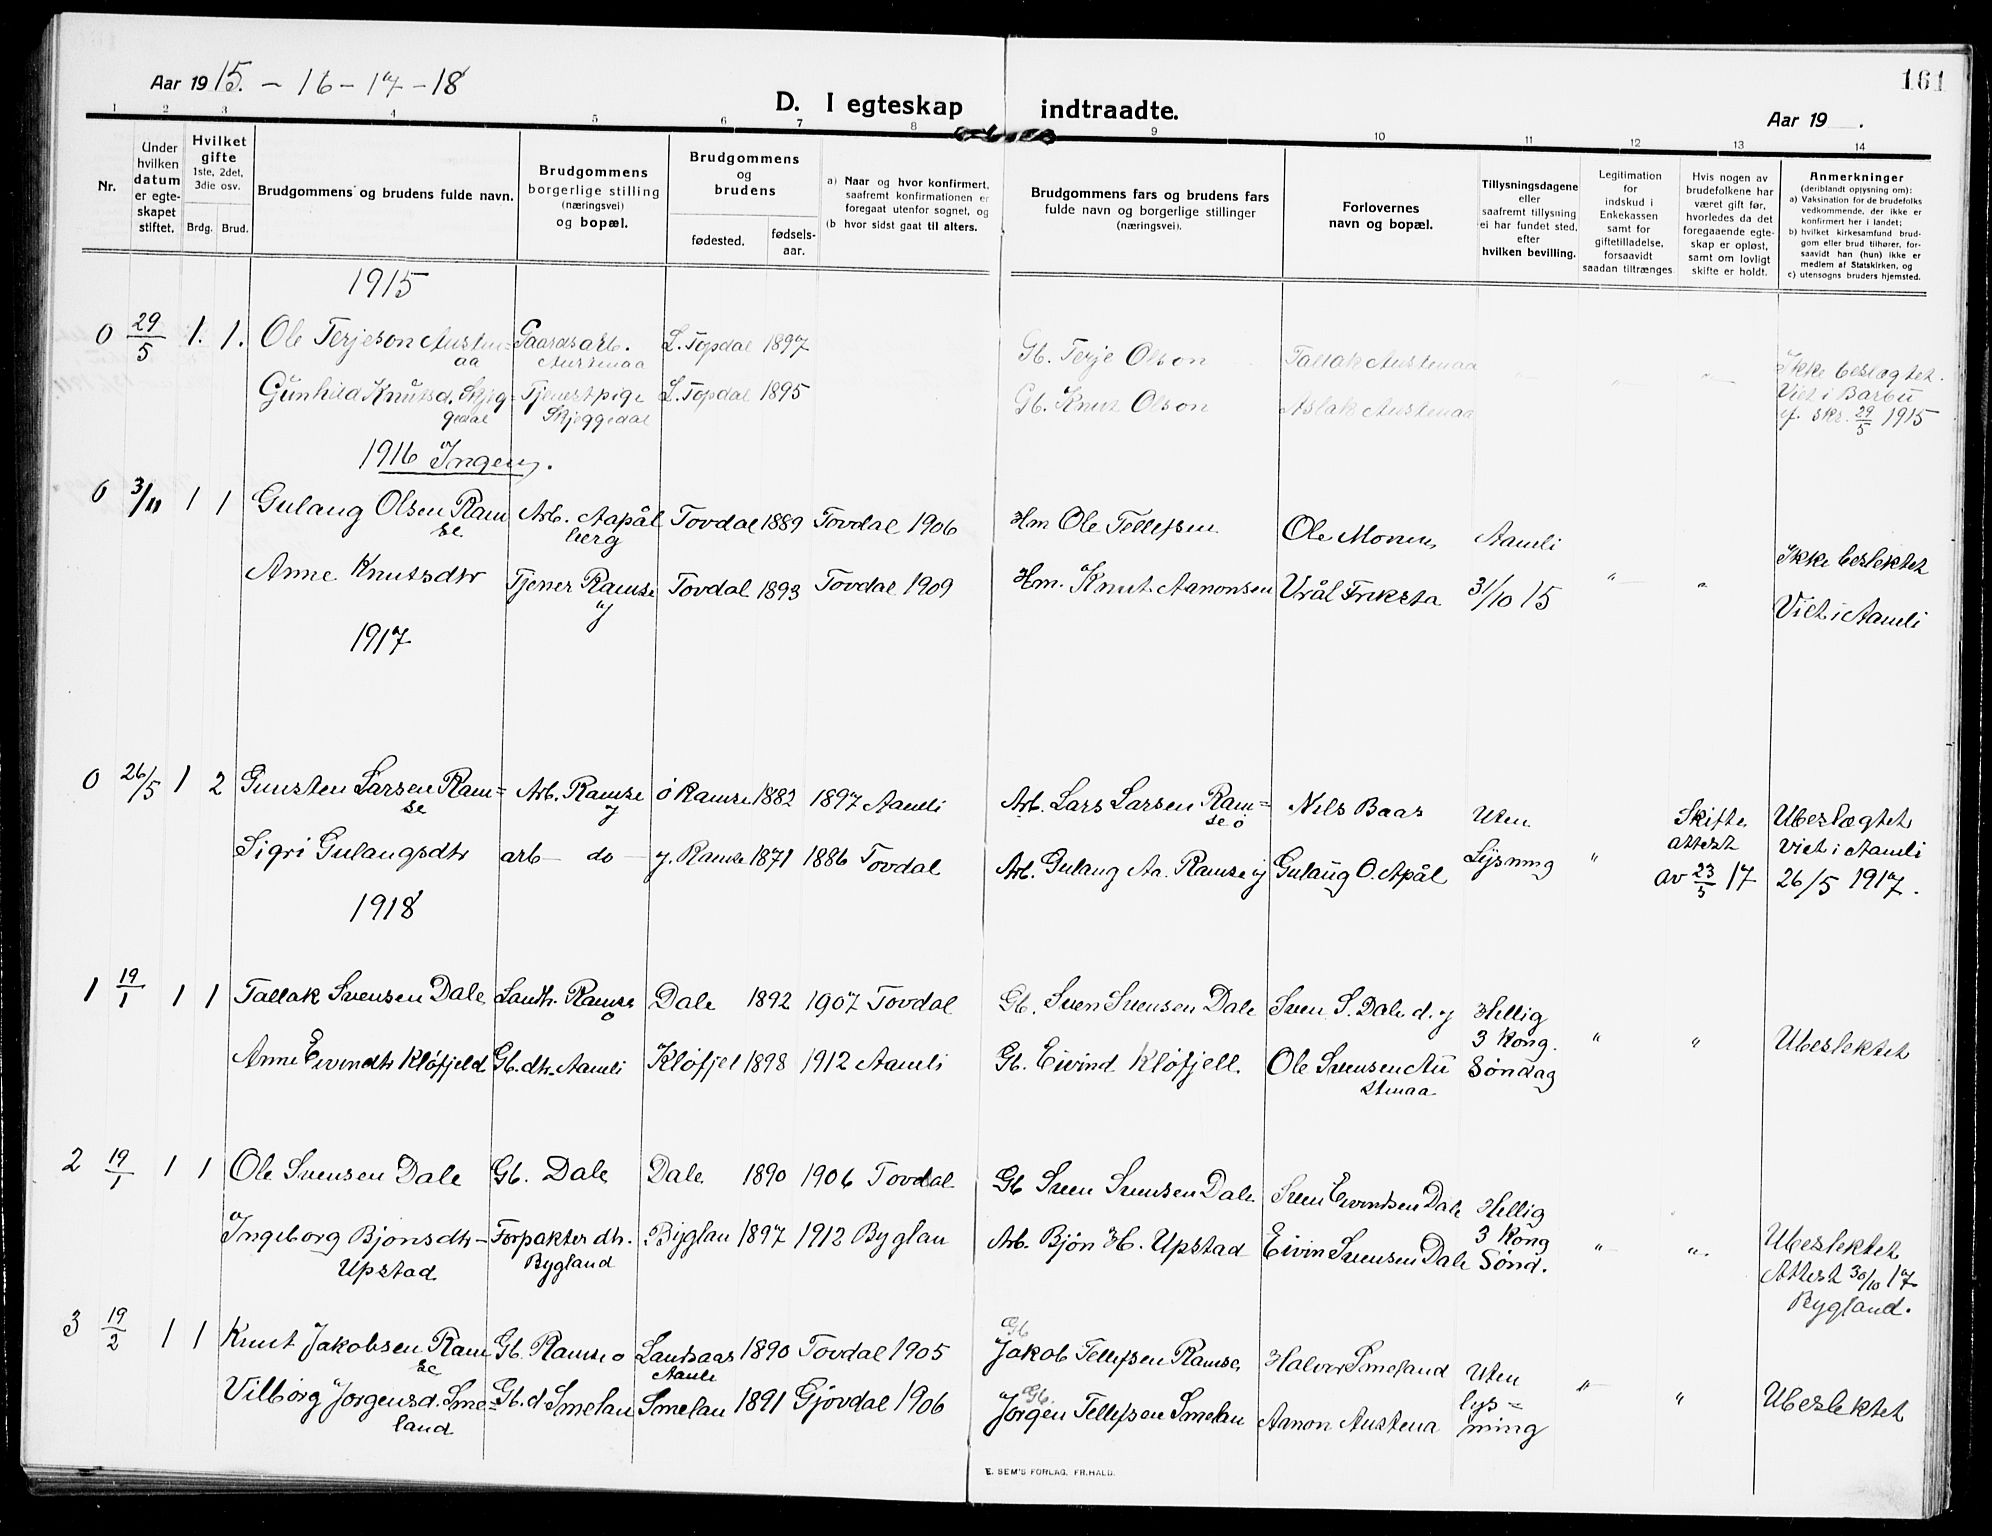 161
Aar 1915. - 16 - 17 - 18
D. I egteskap indtraadte.
Aar 19 .
1 2 3 4 5 6 7 8 9 10 11 12 13 14
Nr.
Under hvilken datum er egteskapet stiftet.
Hvilket gifte 1ste, 2det, 3die osv.
Brdg. Brud.
Brudgommens og brudens fulde navn.
Brudgommens borgerlige stilling (næringsvei) og bopæl.
Brudgommens og brudens
fødested. fødselsaar.
a) Naar og hvor konfirmert, saafremt konfirmationen er foregaat utenfor sognet, og
(b hvor sidst gaat til alters.
Brudgommens fars og brudens fars fulde navn og borgerlige stillinger (næringsvei).
Forlovernes navn og bopæl.
Tillysningsdagene eller saafremt tillysning ei har fundet sted, efter hvilken bevilling.
Legitimation for indskud i Enkekassen samt for giftetilladelse, forsaavidt saadan tiltrænges
Hvis nogen av brudefolkene har været gift før, hvorledes da det foregaaende egteskap er opløst, samt om lovligt skifte er holdt.
Anmerkninger (deriblandt opysning om):
a) Vaksination for de brudefolks vedkommende, der ikke er konfirmert her i landet;
b) hvilket kirkesamfund brudgom eller brud tilhører, forsaavidt han (hun) ikke er medlem af Statskirken, og
c) utensogns bruders hjemsted.
1915
0 29/5 1. 1. Ole Terjeson Austenaa Gaardsarb. Austenaa L. Topdal 1897 Gb. Terje Olson Tallak Austenaa " " " Ikke beslægtet.
Gunhild Knutsd. Skjeggedal Tjenestpige Skjeggedal L. Topdal 1895 Gb. Knut Olson Aslak Austenaa Viet i Barbu
cf. skr. 29/5 1915
1916 Ingen.
0 3/11 1 1 Gulaug Olsen Ramse Arb. Aapålberg Tovdal 1889 Tovdal 1906 Hm Ole Tellefsen Ole Monen Aamli
Anne Knutsdtr Tjener Ramse y Tovdal 1893 Tovdal 1909 Hm. Knut Aanonsen Urål Friksta 31/10 15 " " Ikke beslektet
Viet i Aamli
1917
0 26/5 1 2 Gunsten Larsen Ramse Arb. Ramse y ø Ramse 1882 1897 Aamli Arb. Lars Larsen Ramse ø Nils Baas Uten Skifte attest av 23/5 17 Ubeslægtet
Sigri Gulaugsdtr arb - do - y. Ramse 1871 1886 Tovdal Arb. Gulaug Aa. Ramse y Gulaug O. Apål Lysning " viet i Aamli
26/5 1917.
1918
1 19/1 1 1 Tallak Svensen Dale Landh. Ramse ø Dale 1892 1907 Tovdal Gb. Sven Svensen Dale Sven S. Dale d. y Hellig
3 Kong. " " Ubeslektet
Anne Eivindtr Kløfjeld Gb. dtr. Aamli Kløfjel 1898 1912 Aamli Gb. Eivind Kløfjell. Ole Svensen Austenaa Søndag
2 19/1 1 1 Ole Svensen Dale Gb. Dale Dale 1890 1906 Tovdal Gb Sven Svensen Dale Sven Eivindsen Dale Hellig
3 Kong
Ingeborg Bjørnsdtr Upstad Forpakter dtr. Bygland Byglan 1897 1912 Byglan Arb. Bjøn H. Upstad Eivin Svensen Dale Sønd. " " Ubeslektet
Attest 30/10 17
Bygland.
3 19/2 1 1 Knut Jakobsen Ramse Gb. Ramse ø Landsaas Aamli 1890 Tovdal 1905 Gb Jakob Tellefsen Ramse Halvor Smeland Uten
Vilborg Jørgensd. Smeland Gb. d Smelan Smelan 1891 Gjøvdal 1906 Gb Jørgen Tellefsen Smelan Aanon Austena lysning " " Ubeslektet
E. SEM'S FORLAG, FR.HALD.